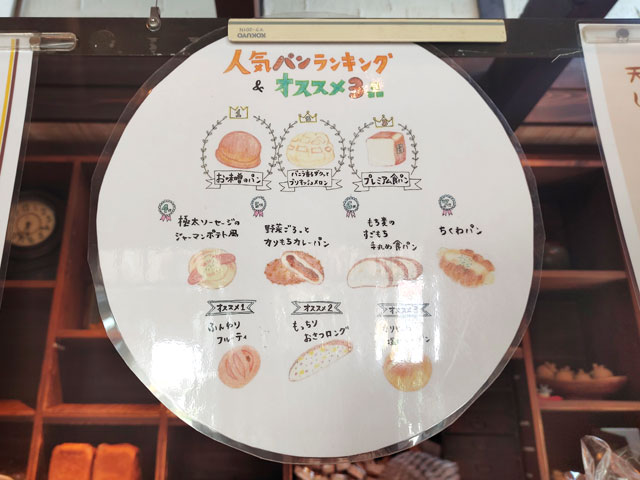 KOKUYO
人気パンランキング
& オススメ3!!
1
2
3
お味噌のパン
プレミアム食パン
4
5
6
7
極太ソーセージの
ジャーマンポテト風
野菜ごろっと
カリもちカレーパン
もち麦の
すごもち
手丸め食パン
ちくわパン
オススメ1
オススメ2
オススメ3
ふんわり
フルーティ
もっちり
おさつロング
天
し